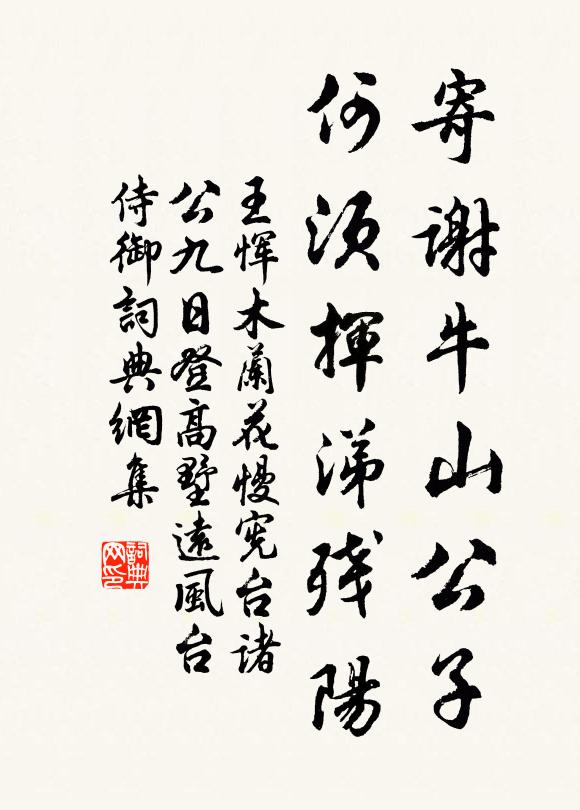 寄謝牛山公子
何須揮涕残陽
王惲木蘭花慢宪台諸
公九日登高墅遠風台
侍御詞典網集
詞典网印